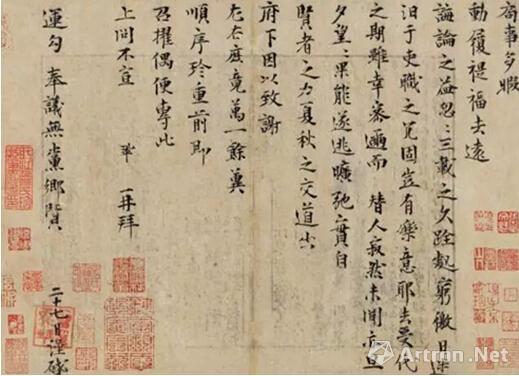 局事多暇
動履禔福去遠
誨論之益忽忽三載之久跧處窮徼日迷
汩于吏職之冗固豈有樂意耶去受代
之期雖幸密邇而替人寂然未聞亦旦
夕望望果能遂逃曠弛實自
賢者之力夏秋之交道出
府下因以致謝
左右庶竟萬一餘冀
順序珍重前即
召擢偶便專此
上問不宣 鞏 再拜
運勾奉議無黨鄉賢
二十七日謹啓
Artron.Net